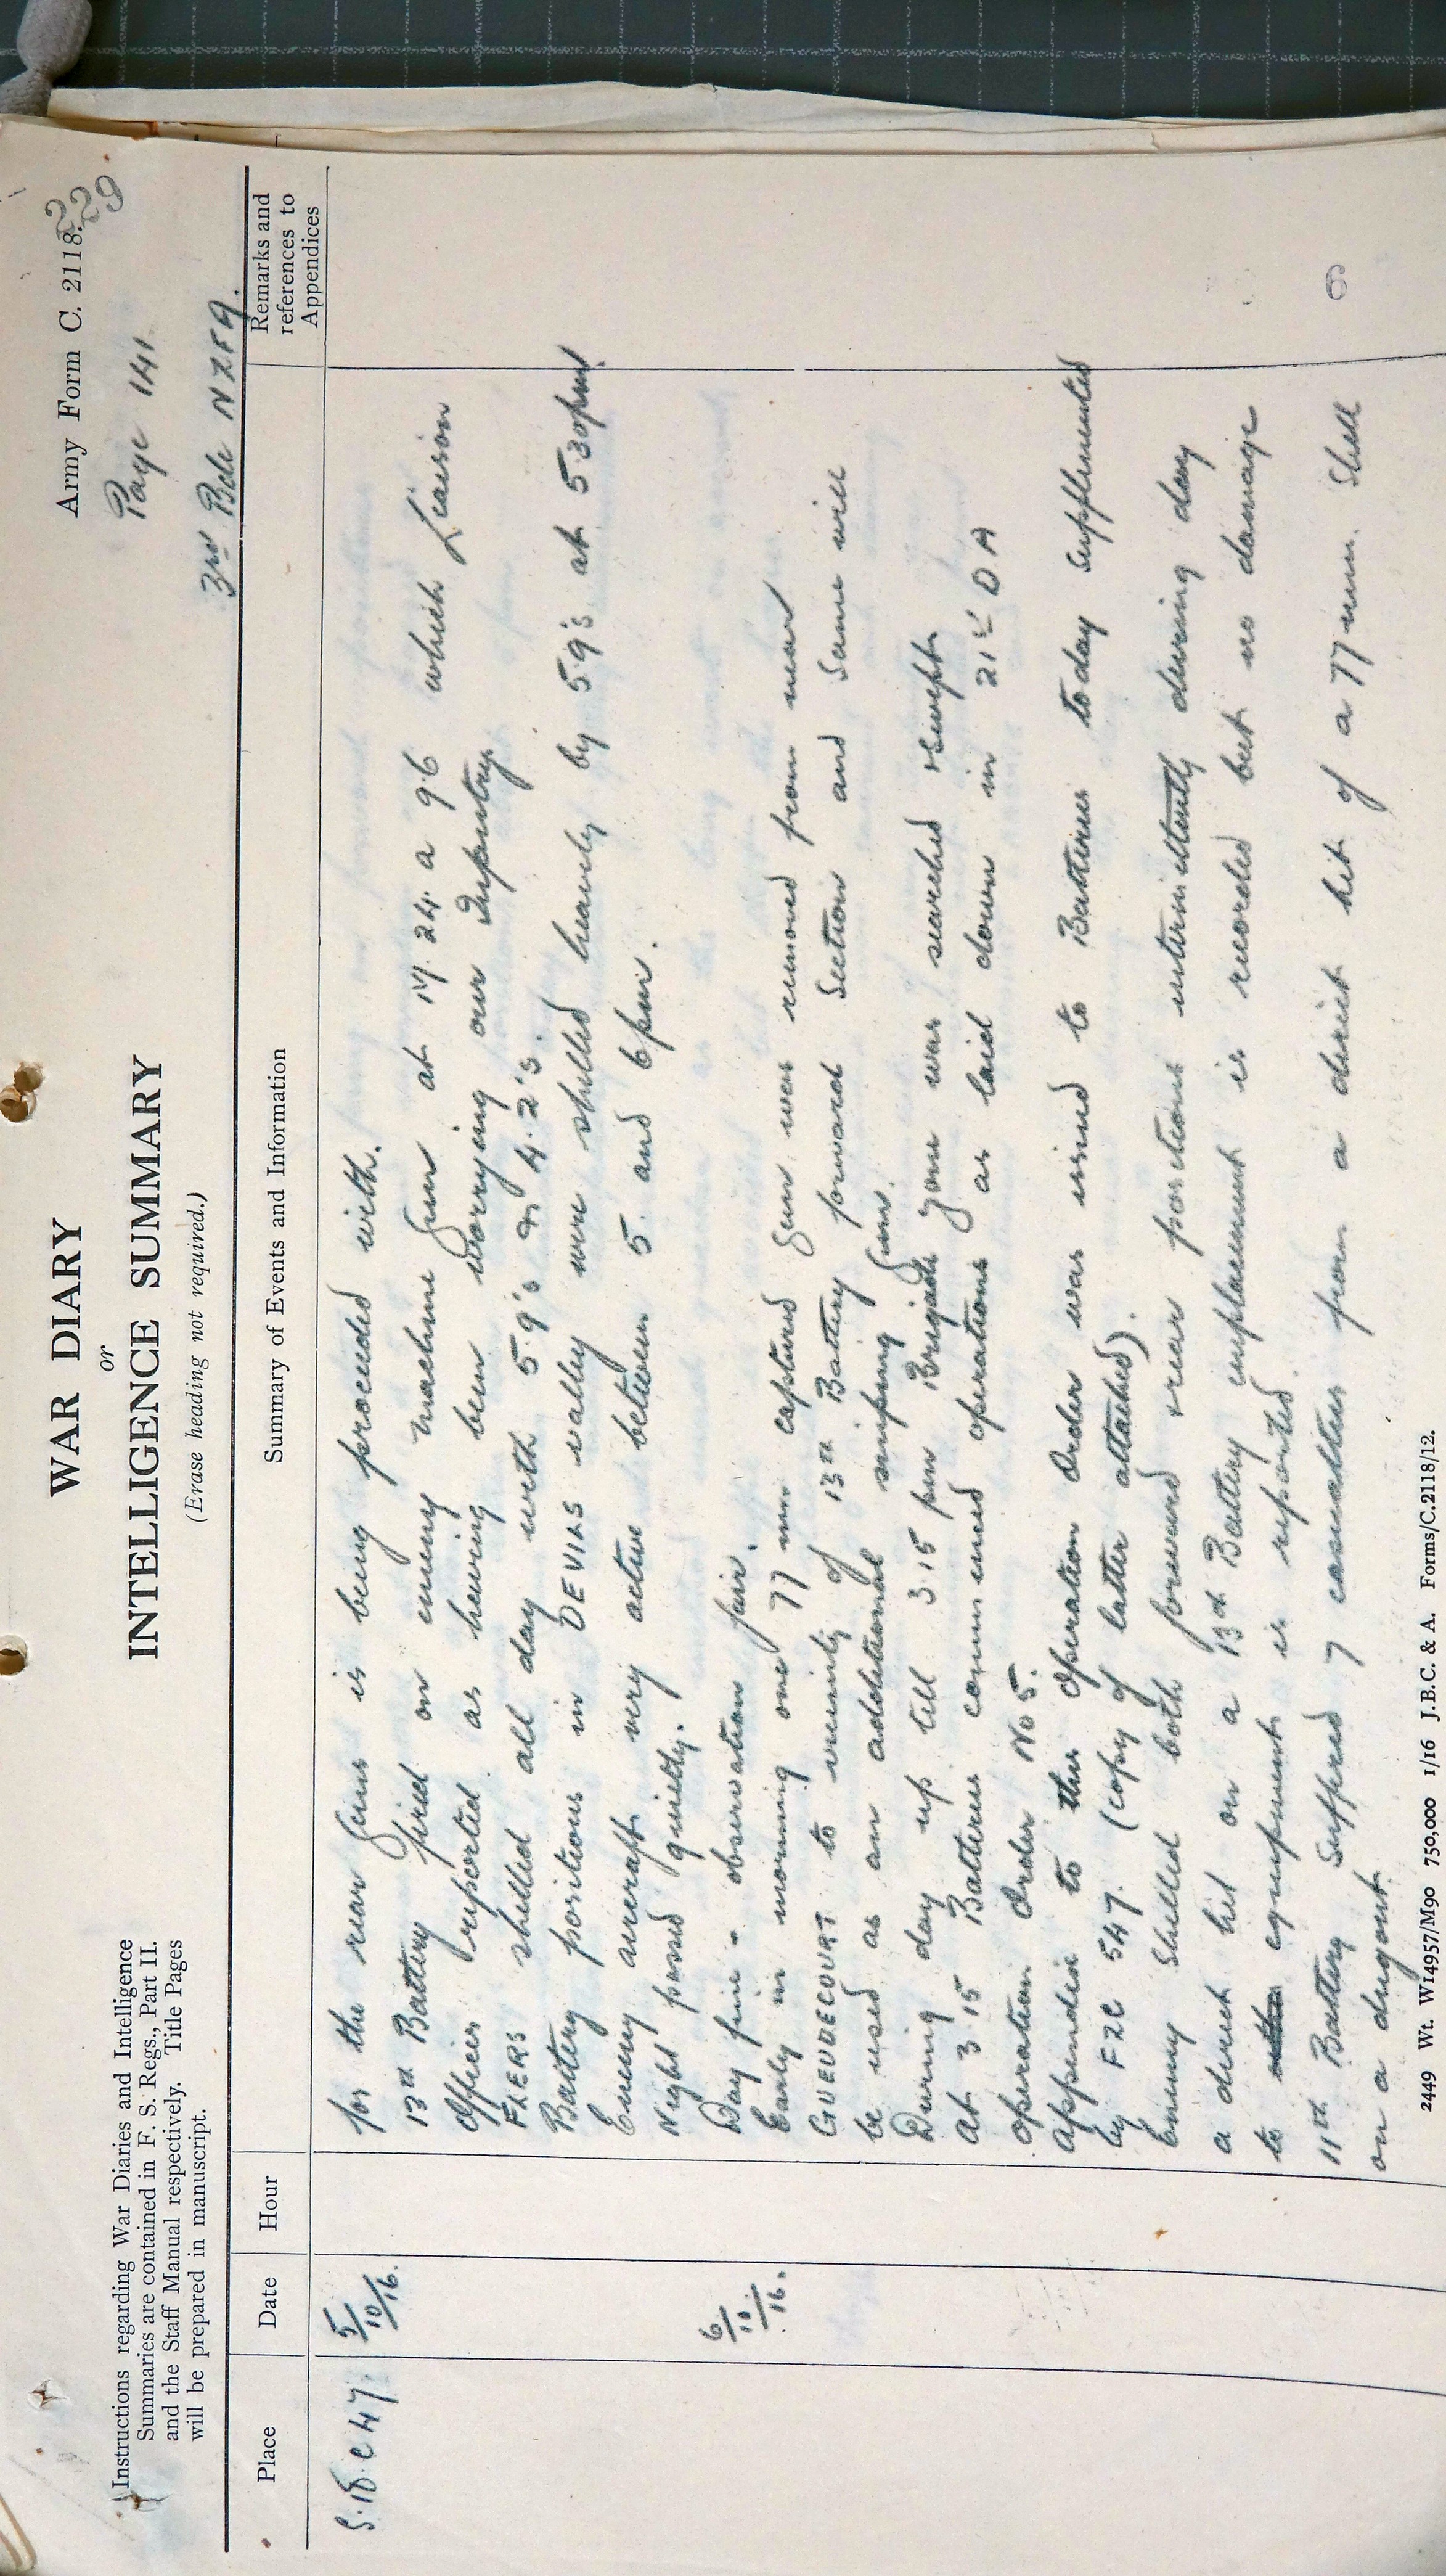 Army Form C. 2118.
229
WAR DIARY
or
INTELLIGENCE SUMMARY
(Erase heading not required.)
Instructions regarding War Diaries and Intelligence
Summaries are contained in F. S. Regs., Part II.
and the Staff Manual respectively. Title Pages
will be prepared in manuscript.
Page 141
3rd Bde NZFA.
Place
Date
Hour
Summary of Events and Information
Remarks and
references to
Appendices
S.18.c 47.
5/10/16.
for the rear guns is being proceeded with.
13th Battery fired on enemy machine gun at M.24.a 9.6 which Liaison
Officer reported as having been worrying our Infantry.
FLERS shelled all day with 5.9's & 4.2's.
Battery positions in DEVILS valley were shelled heavily by 5.9's at 5 30pm.
Enemy aircraft very active between 5 and 6pm.
Night passed quietly.
6/10/16.
Day fine - observation fair.
Early in morning one 77 mm captured gun was removed from near
GUEUDECOURT to vicinity of 13th Battery forward Section and same will
be used as an additional sniping gun.
During day up till 3.15 pm Brigade zone was searched & swept
At 3 15 Batteries commenced operations as laid down in 21st D A
operation Order No 5.
Appendix to this Operation Order was issued to Batteries today supplemented
by FZC 547. (copy of latter attached).
Enemy shelled both forward & rear positions intermittently during day
a direct hit on a 13th Battery emplacement is recorded but no damage
to equipment is reported.
11th Battery suffered 7 casualties from a direct hit of a 77 mm. shell
on a dugout.
6
2449 Wt. W14957/M90 750,000 1/16 J.B.C. & A. Forms/C.2118/12.